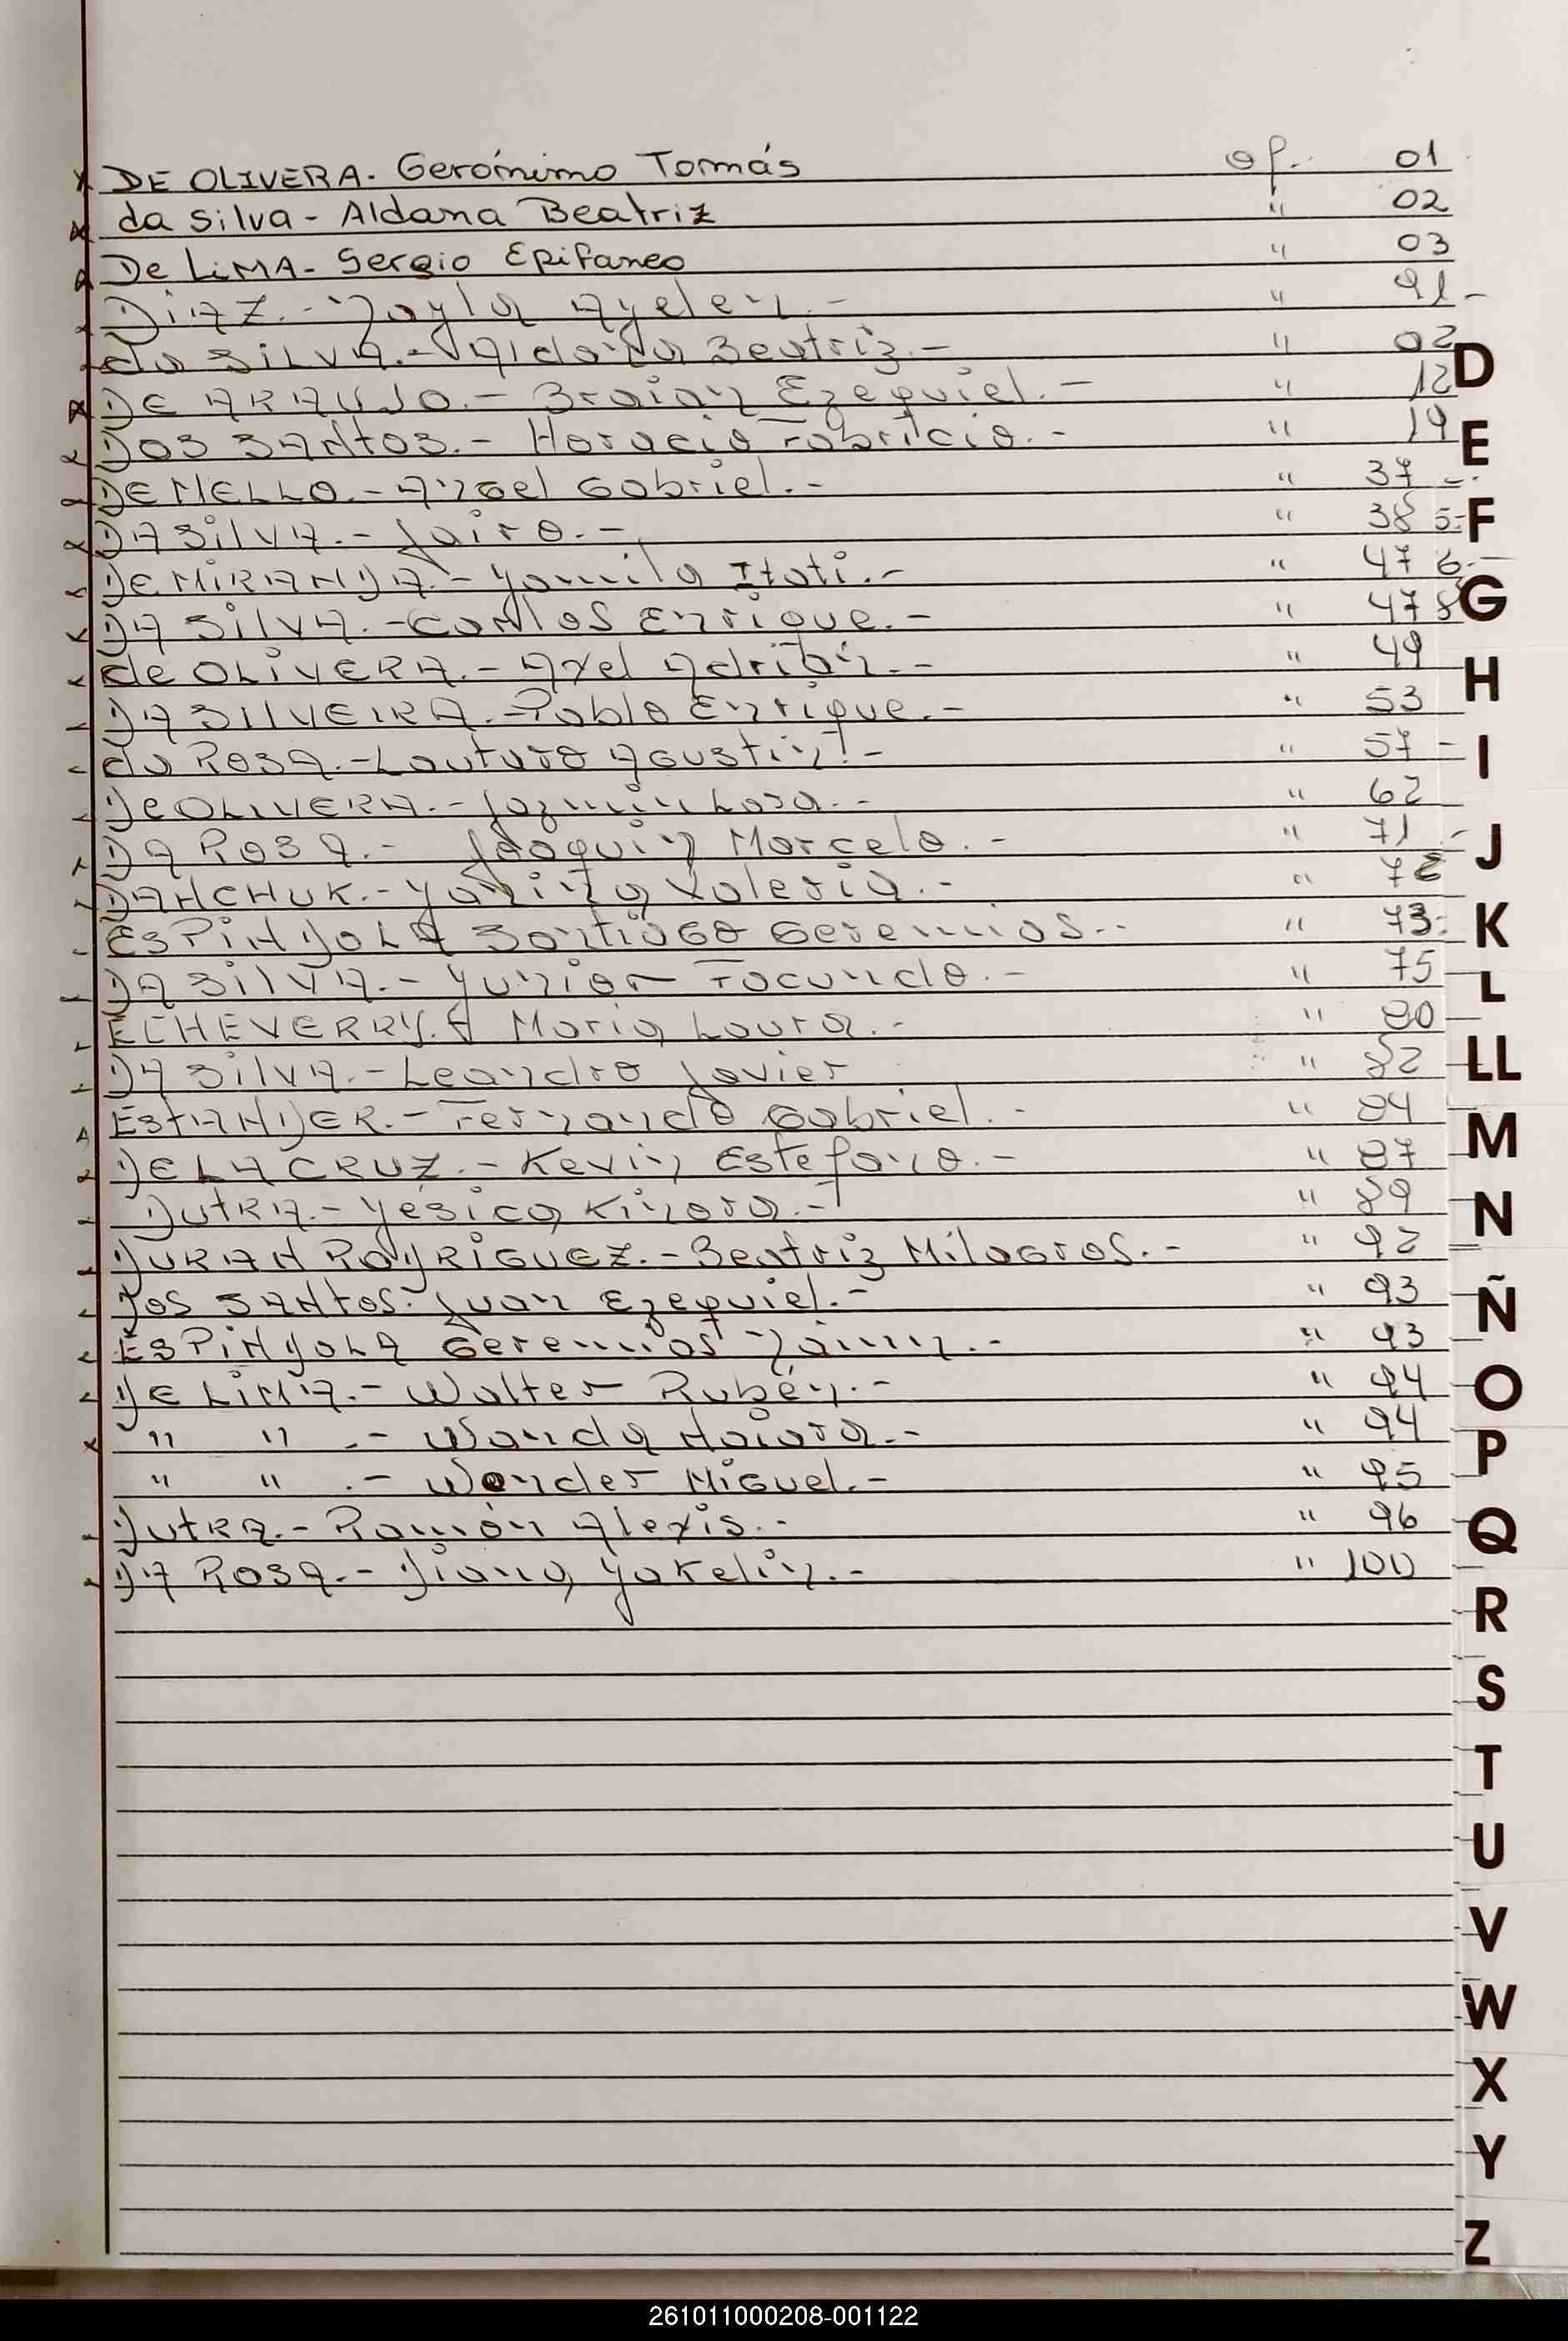 DE OLIVERA. Gerónimo Tomás of. 01
da Silva - Aldana Beatriz " 02
De LiMA - Sergio Epifaneo " 03
DiAZ.- Nayla Ayelen.- " 91-
da SiLVA.- Aldana Beatriz.- " 02
DE ARAUJO.- Braian Ezequiel.- " 12
DOS SANtOS.- Horacio Fabricio.- " 19
DE MELLO.- Angel Gabriel.- " 37
DA Silva.- Jairo.- " 38
DE MiRANDA.- Yamila Itati.- " 47
DA SilVA.- Carlos Enrique.- " 47
de OLiVERA.- Axel Adrián.- " 49
DA SILVEIRA.- Pablo Enrique.- " 53
da ROSA.- Lautaro Agustin.- " 57-
De OLIVERA.- Jazmin Lara.- " 62
DA ROSA.- Joaquin Marcelo.- " 71.-
DANCHUK.- Yanina Valeria.- " 72
ESPiNDOLA Santiago Geremias.- " 73-
DA SilVA.- Yunior Facundo.- " 75
ECHEVERRY. Maria Laura.- " 80
DA SilVA.- Leandro Javier " 82
EStANDER.- Fernando Gabriel.- " 84
DE LA CRUZ.- Kevin Estefano.- " 87
DutRA.- Yésica Kinara.- " 89
DURAN RODRIGUEZ.- Beatriz Milagros.- " 92
Dos SANtOS.- Juan Ezequiel.- " 93
ESPiNDOLA Geremias " 93
DE LiMA.- Walter Rubén.- " 94
" " .- Wanda Naiara.- " 94
" " .- Wander Miguel.- " 95
DutRA.- Ramón Alexis.- " 96
DA ROSA.- Diana Yakelin.- " 100
D
E
F
G
H
I
J
K
L
LL
M
N
Ñ
O
P
Q
R
S
T
U
V
W
X
Y
Z
261011000208-001122